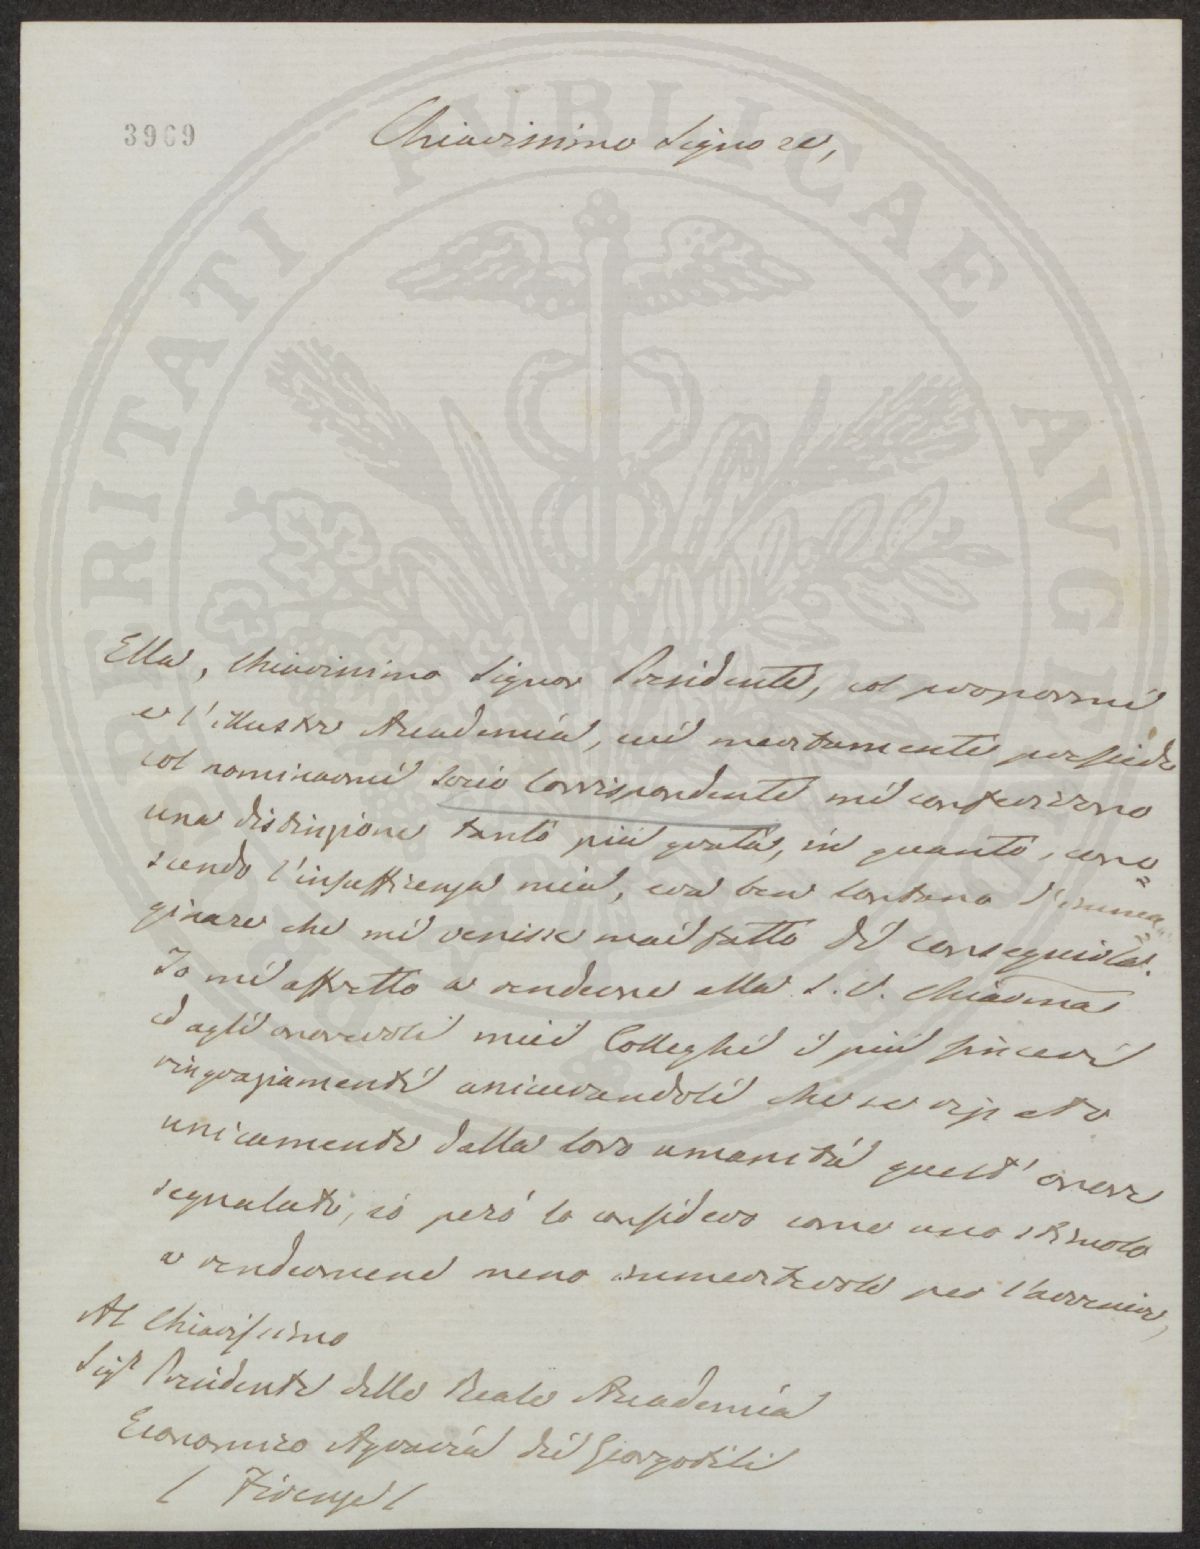 3969
Chiarissimo Signore,
Ella, Chiarissimo Signor Presidente, col propormi
e l'illustre Accademia, cui meritamente presiede
col nominarmi Socio Corrispondente mi conferirono
una distinzione tanto più grata, in quanto, cono=
scendo l'insufficienza mia, era ben lontano d'imma=
ginare che mi venisse mai fatto di conseguirla.
Io mi affretto a renderne alla S. V. Chiar.ma
ed agli onorevoli miei Colleghi i più sinceri
ringraziamenti assicurandoli che se ripeto
unicamente dalla loro umanità quest' onore
segnalato, io però lo considero come uno stimolo
a rendermene meno immeritevole per l'avvenire,
Al Chiarissimo
Sig.r Presidente della Reale Accademia
Economico Agraria dei Georgofili
( Firenze (
PROSPERITATI PUBLICAE AVGENDAE